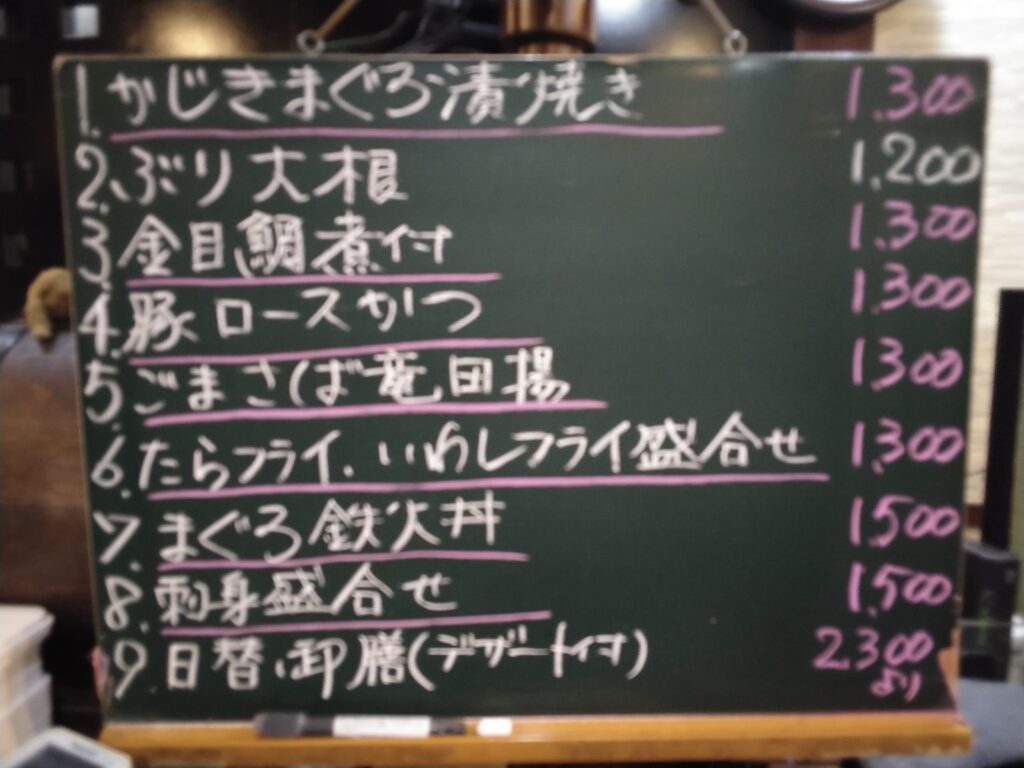 1. かじきまぐろ漬焼き 1,300
2. ぶり大根 1,200
3. 金目鯛煮付 1,300
4. 豚ロースかつ 1,300
5. ごまさば竜田揚 1,300
6. たらフライ.いわしフライ盛合せ 1,300
7. まぐろ鉄火丼 1,500
8. 刺身盛合せ 1,500
9. 日替り御膳(デザート付) 2,300
より